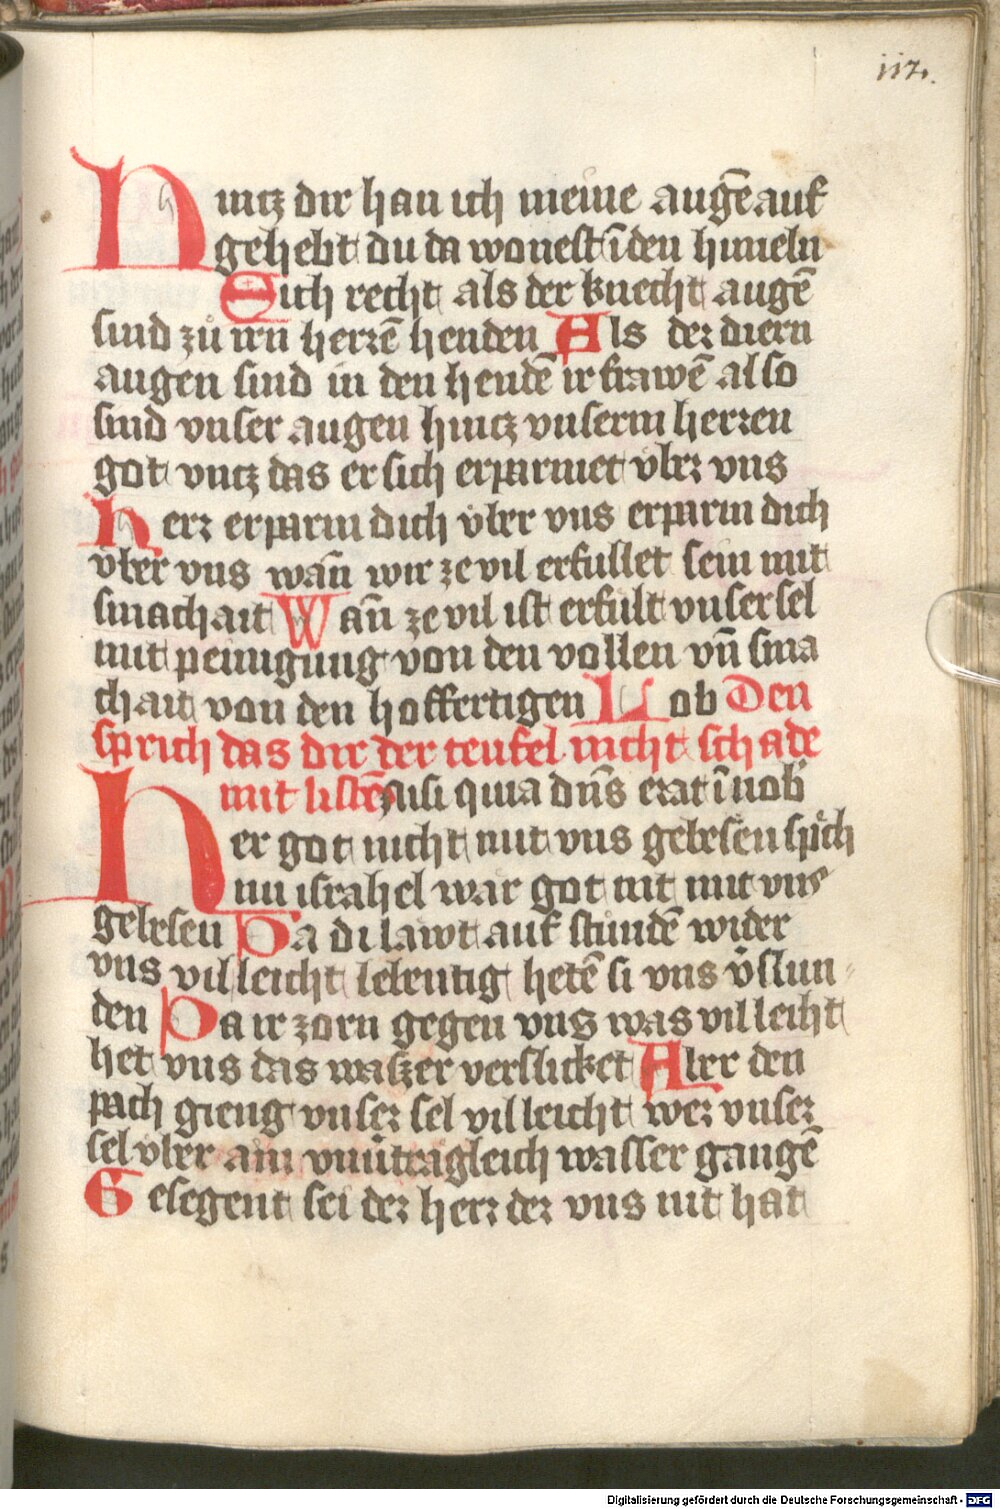 117.
Hintz dir han ich meine augē auf
gehebt du da wonest ī den himeln
Sich recht als der knecht augē
sind zů irn herrē henden Als der diern
augen sind in den hendē ir frawē also
sind vnser augen hintz vnserm herren
got vntz das er sich erparmet vber vns
herr erparm dich vber vns erparm dich
vber vns wan̄ wir ze vil erfullet sein mit
smachait Wan̄ ze vil ist erfult vnser sel
mit peinigung von den vollen vn̄ sma
chait von den hoffertigen Lob Den
sprich das dir der teufel nicht schade
mit listē Nisi quia dn̄s erat ī nob
her got nicht mit vns gebesen sp̃ch
nu israhel war got nit mit vns
gebesen Da di lawt auf stůndē wider
vns villeicht lebentig hetē si vns v̄slun
den Da ir zorn gegen vns was villeiht
het vns das waszer verslicket Aber den
pach gieng vnser sel villeicht wer vnser
sel vber ain vnuͤtragleich wasser gangē
Gesegent sei der herr der vns nit hat
Digitalisierung gefördert durch die Deutsche Forschungsgemeinschaft - DFG